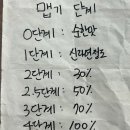 맵기 단계
0단계 : 순한맛
1단계 : 신라면정도
2단계 : 30%
2.5단계 : 50%
3단계 : 70%
4단계 : 100%